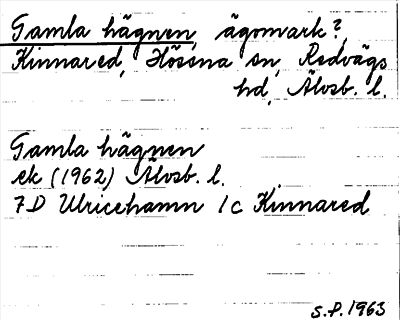 Gamla hägnen, ägomark?,
Kinnared, Hössna sn, Redvägs
hd, Älvsb. l.
Gamla hägnen
ek (1962) Älvsb. l.
7D Ulricehamn 1c Kinnared
S.P. 1963